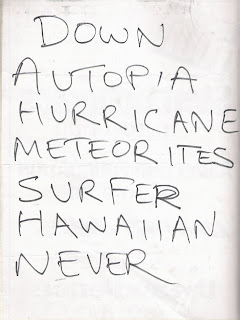 DOWN
AUTOPIA
HURRICANE
METEORITES
SURFER
HAWAIIAN
NEVER